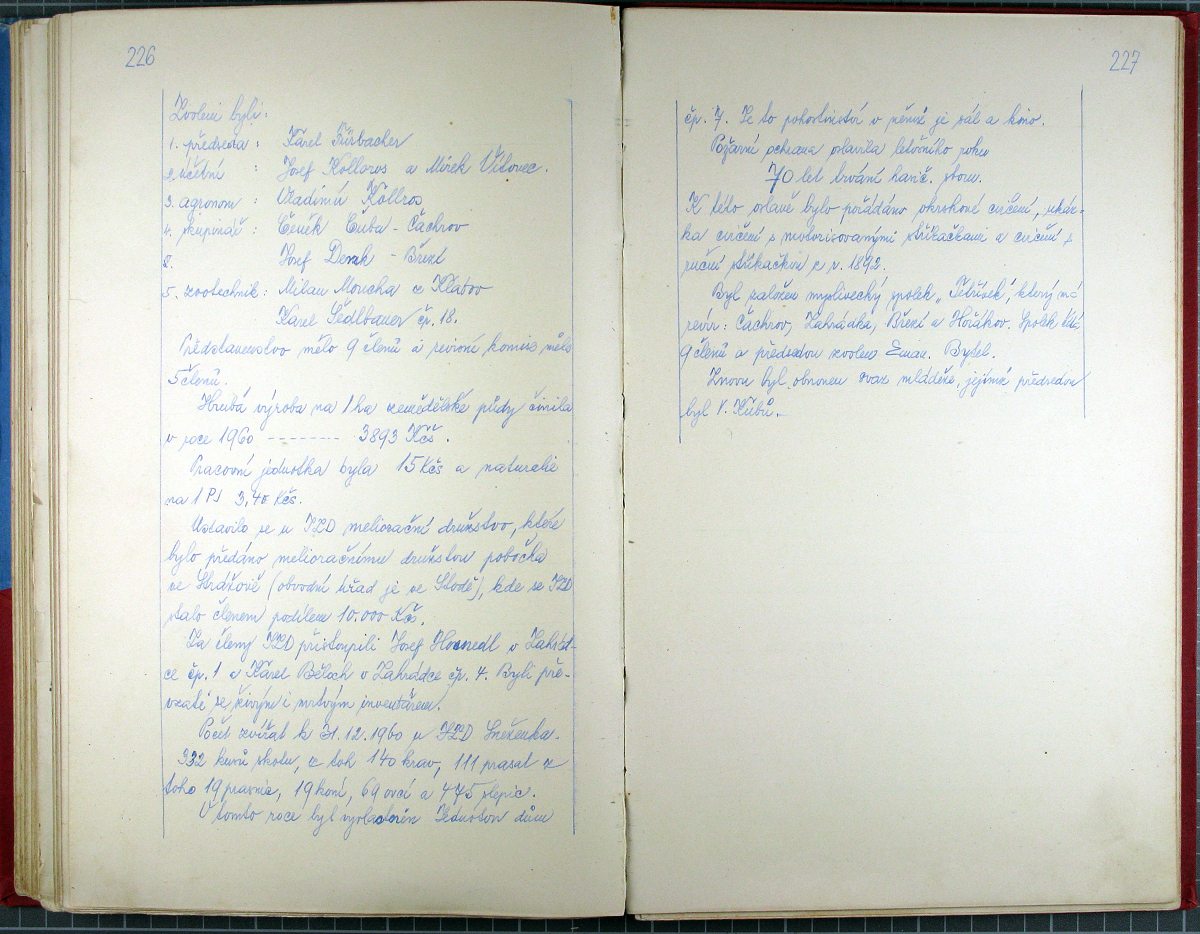 226
Zvoleni byli:
1. předseda : Karel Fürbacher
2. účetní : Josef Kollros a Mirek Vítovec.
3. agronom : Vladimír Köllros
4. skupinář : Čeněk Čubu - Čachrov
2. Josef Denk - Březí
5. zootechnik : Milan Moucha z Klatov
Karel Sedlbauer čp. 18.
Představenstvo mělo 9 členů a revisní komise měla
5 členů.
Hrubá výroba na 1 ha zemědělské půdy činila
v roce 1960 -------- 3893 Kčs.
Pracovní jednotka byla 15 Kčs a naturalie
na 1 PJ 3,40 Kčs.
Ustavilo se u JZD meliorační družstvo, které
bylo předáno melioračnímu družstvu pobočka
ve Strážově (obvodní úřad je ve Stodě), kde se JZD
stalo členem podílem 10.000 Kčs.
Za členy JZD přistoupili Josef Hosnedl v Zahrád-
ce čp. 1 a Karel Běloch v Zahrádce čp. 4. Byli pře-
vzati se živým i mrtvým inventářem.
Počet zvířat k 31.12.1960 u JZD Sněženka.
332 kusů skotu, z toh 140 krav, 111 prasat z
toho 19 prasnic, 19 koní, 69 ovcí a 475 slepic.
V tomto roce byl Jednotou dům
227
čp. 7. Je to pohostinství v němž je sál a kino.
Požární ochrana oslavila letošního roku
70 let trvání hasič. sboru.
K této oslavě bylo pořádáno okrskové cvičení, ukáz-
ka cvičení s motorisovanými stříkačkami a cvičení s
ruční stříkačkou z r. 1892.
Byl založen myslivecký spolek "Tetřívek", který má
revír: Čáchrov, Zahrádka, Březí a Hořákov. Spolek
9 členů a předsedou zvolen Eman. Bytel.
Znovu byl obnoven svaz mládeže, jejímž předsedou
byl V. Kubů.-